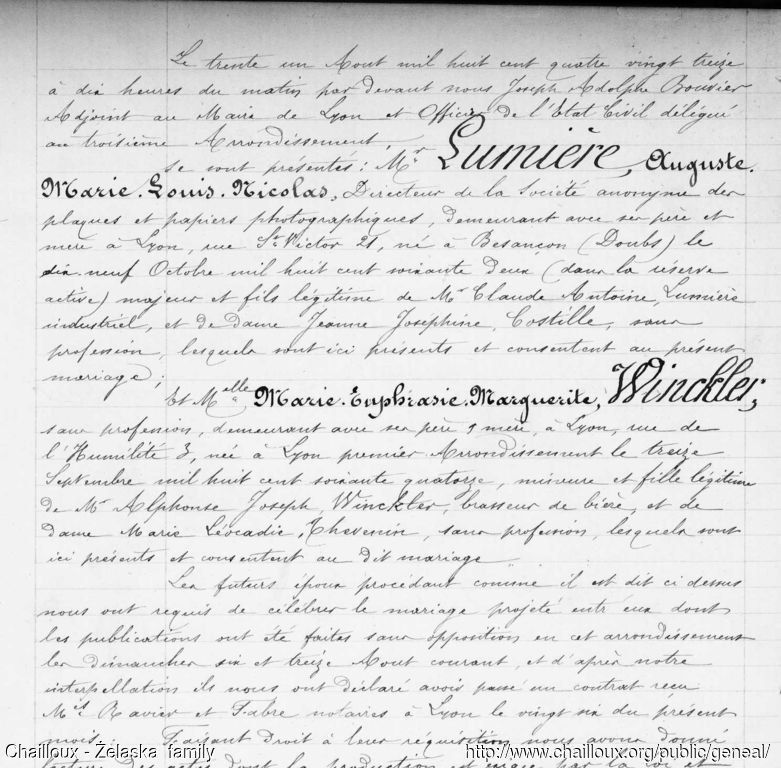 Le trente un Aout mil huit cent quatre vingt treize
à dix heures du matin par devant nous Joseph Adolphe Bouvier
Adjoint au Maire de Lyon et Officier de l'Etat Civil délégué
au troisième Arrondissement,
se sont présentés: Mr Lumière, Auguste.
Marie. Louis. Nicolas, Directeur de la Société anonyme des
plaques et papiers photographiques, demeurant avec ses père et
mère à Lyon, rue St Victor 21, né à Besançon (Doubs) le
dix-neuf Octobre mil huit cent soixante deux (dans la réserve
active) majeur et fils légitime de Mr Claude Antoine, Lumière
industriel, et de dame Jeanne Joséphine, Costille, sans
profession, lesquels sont ici présents et consentent au présent
mariage;
Et Melle Marie. Euphrasie. Marguerite, Winckler,
sans profession, demeurant avec ses père & mère, à Lyon, rue de
l'Humilité 3, née à Lyon premier Arrondissement le treize
Septembre mil huit cent soixante quatorze, mineure et fille légitime
de Mr Alphonse Joseph, Winckler, brasseur de bière, et de
dame Marie Léocadie, Thevenin, sans profession, lesquels sont
ici présents et consentent au dit mariage
Les futurs époux procédant comme il est dit ci dessus
nous ont requis de célébrer le mariage projeté entr'eux dont
les publications ont été faites sans opposition en cet arrondissement
les dimanches six et treize Aout courant, et d'après notre
interpellation ils nous ont déclaré avoir passé un contrat recu
Mes Ravier et Fabre notaires à Lyon le vingt six du présent
mois. Faisant droit à leur réquisition nous avons donné
lecture des actes dont la production est exigée par la loi et
Chailloux - Żelaska family
http://www.chailloux.org/public/geneal/